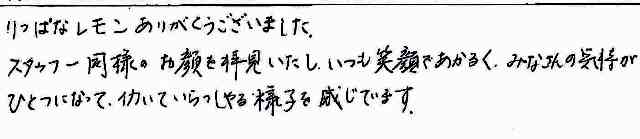 りっぱなレモンありがとうございました。
スタッフ一同様のお顔を拝見いたし、いつも笑顔であかるく、みなさんの気持が
ひとつになって、働いていらっしゃる様子を感じています。